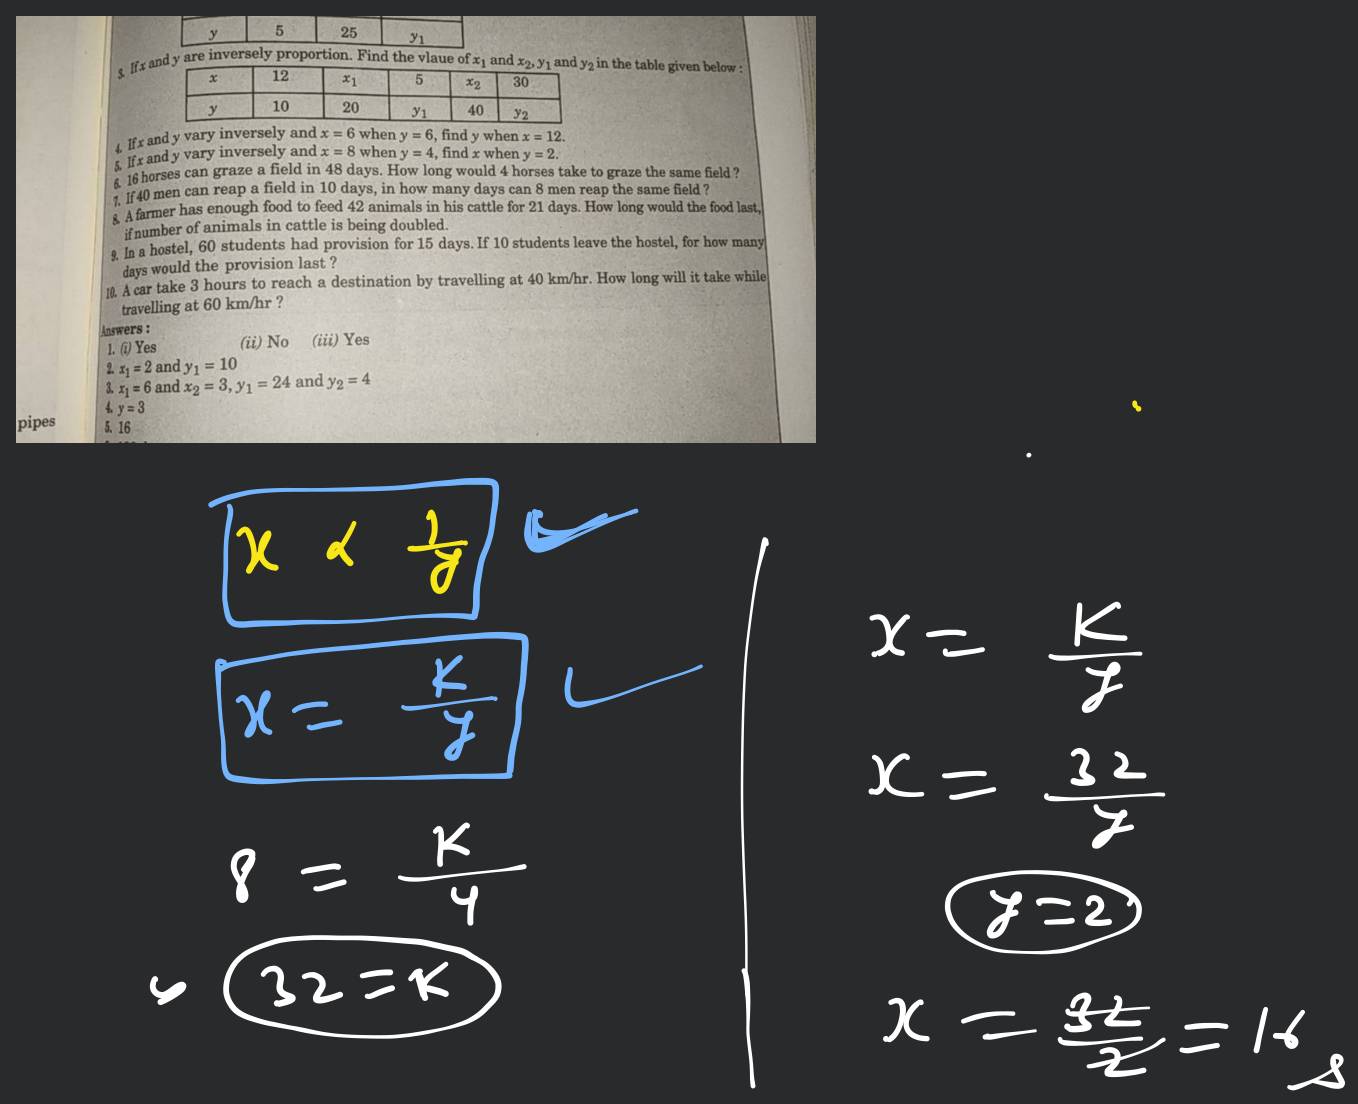 y 5 25 y₁
3. If x and y are inversely proportion. Find the vlaue of x₁ and x₂, y₁ and y₂ in the table given below :
x 12 x₁ 5 x₂ 30
y 10 20 y₁ 40 y₂
4. If x and y vary inversely and x = 6 when y = 6, find y when x = 12.
5. If x and y vary inversely and x = 8 when y = 4, find x when y = 2.
6. 16 horses can graze a field in 48 days. How long would 4 horses take to graze the same field ?
7. If 40 men can reap a field in 10 days, in how many days can 8 men reap the same field ?
8. A farmer has enough food to feed 42 animals in his cattle for 21 days. How long would the food last,
if number of animals in cattle is being doubled.
9. In a hostel, 60 students had provision for 15 days. If 10 students leave the hostel, for how many
days would the provision last ?
10. A car take 3 hours to reach a destination by travelling at 40 km/hr. How long will it take while
travelling at 60 km/hr ?
Answers :
1. (i) Yes (ii) No (iii) Yes
2. x₁ = 2 and y₁ = 10
3. x₁ = 6 and x₂ = 3, y₁ = 24 and y₂ = 4
4. y = 3
5. 16
pipes
x ∝ 1/y
x = K/y
8 = K/4
32 = K
x = K/y
x = 32/y
y = 2
x = 32/2 = 16